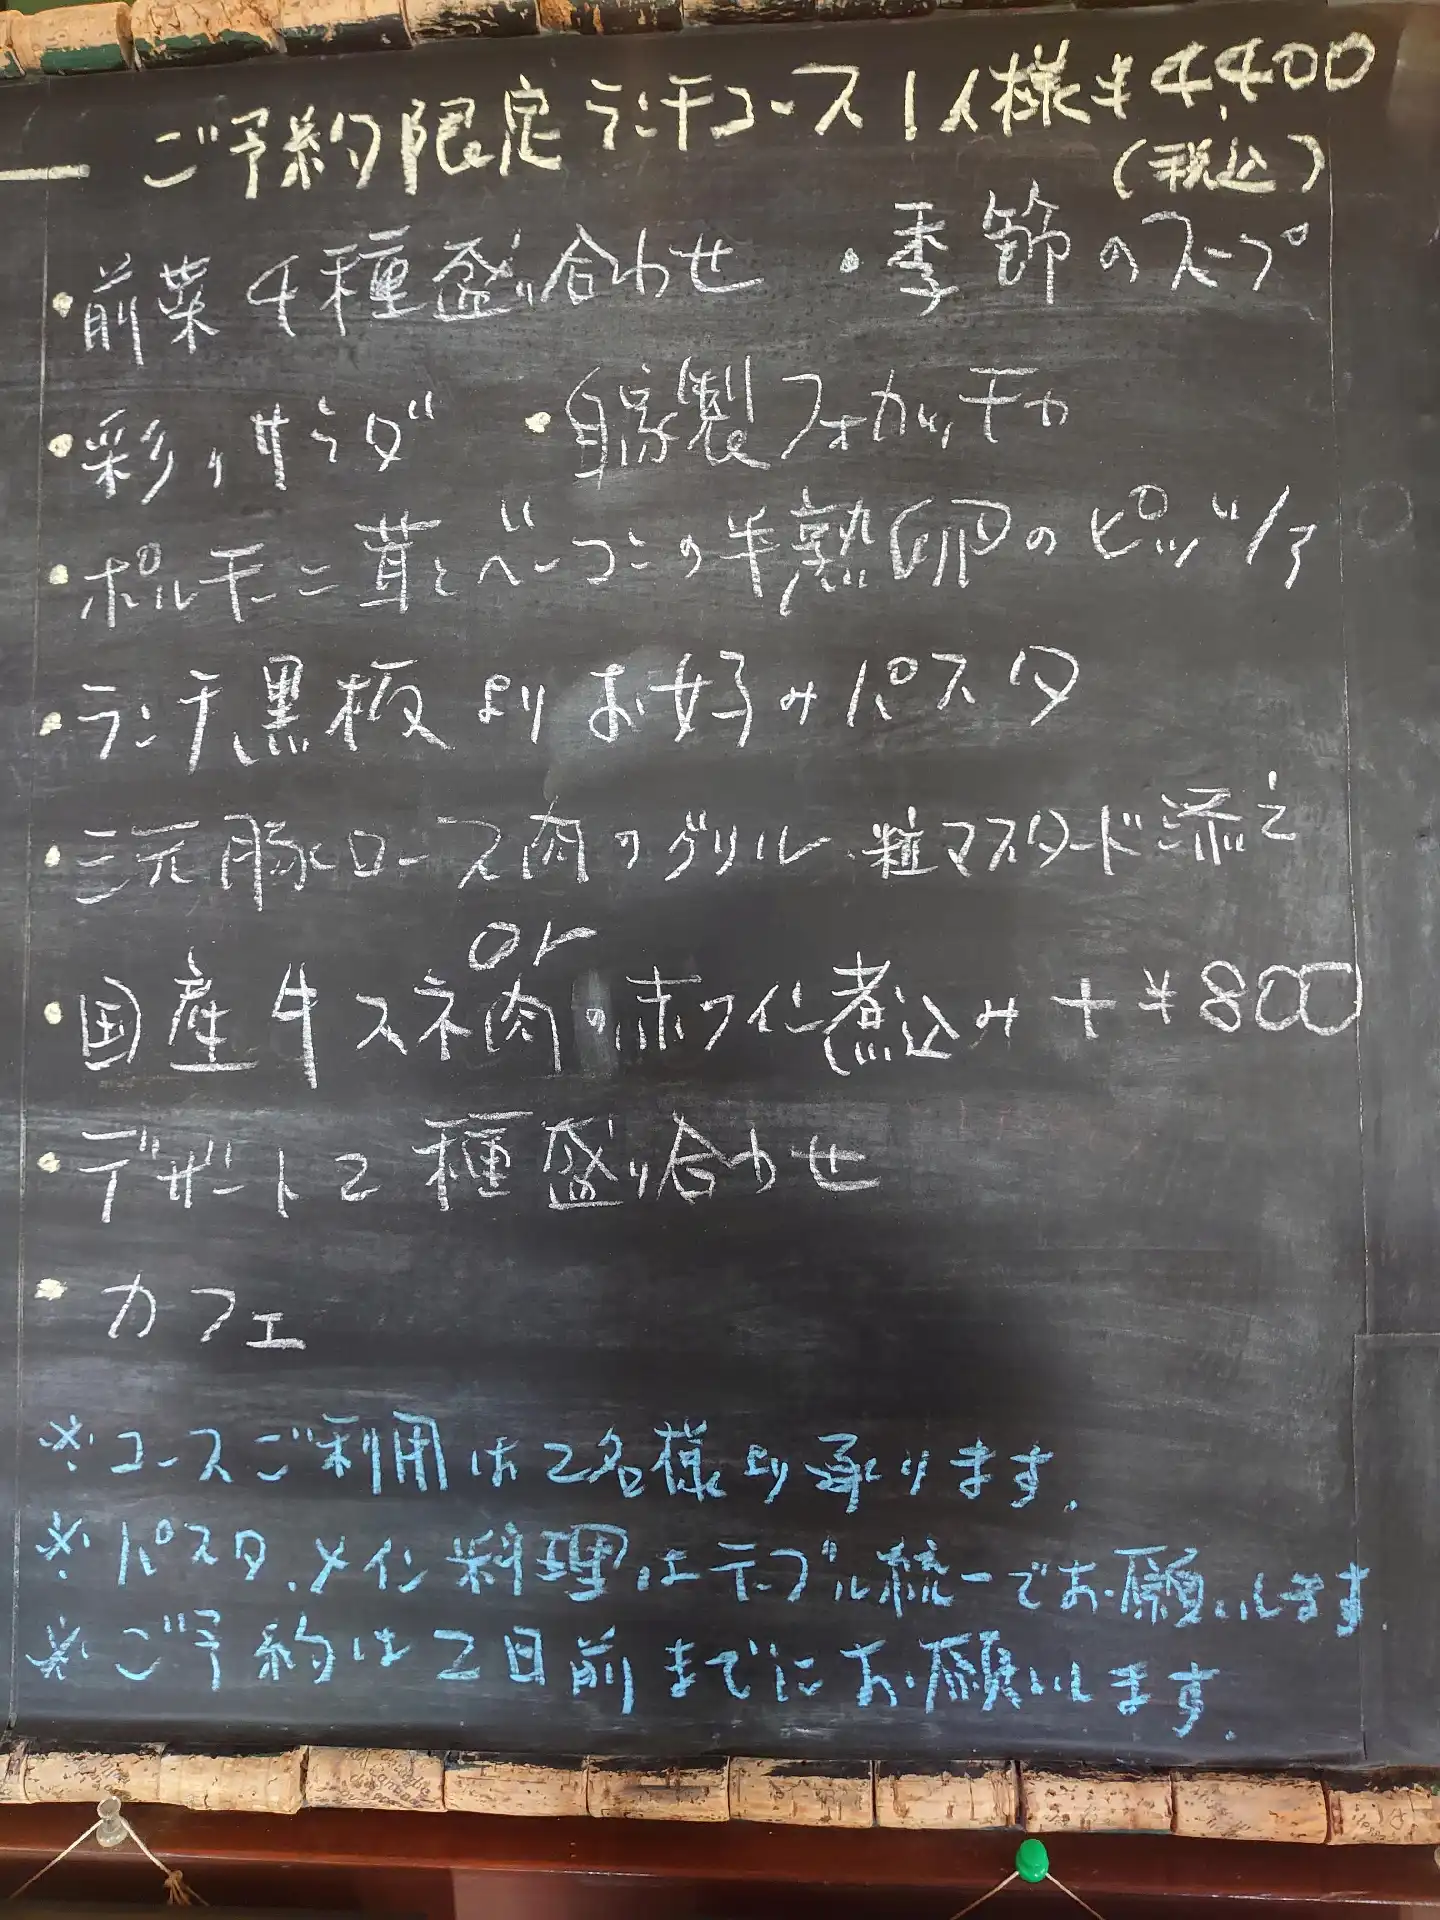 ご予約限定ランチコース1人様¥4,400
(税込)
・前菜4種盛り合わせ ・季節のスープ
・彩りサラダ ・自家製フォカッチャ
・ポルチーニ茸とベーコンの半熟卵のピッツァ
・ランチ黒板よりお好みパスタ
・三元豚ロース肉のグリル 粒マスタード添え
or
・国産牛スネ肉の赤ワイン煮込み+¥800
・デザート2種盛り合わせ
・カフェ
※コースご利用は2名様より承ります.
※パスタ、メイン料理はテーブル統一でお願いします.
※ご予約は2日前までにお願いします.